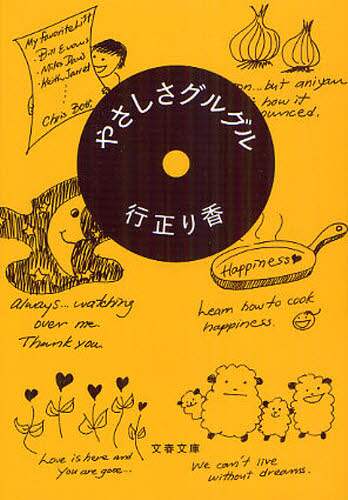 My Favorite List
・Bill Evans
・Miles Davis
・Keith Jarret
Chris
on... but
how it
ounced.
やさしさグルグル
行正り香
Always... watching
over me.
Thank you.
Happiness♥
Learn how to cook
happiness.
Love is here and
you are gone...
We can't live
without dreams.
文春文庫